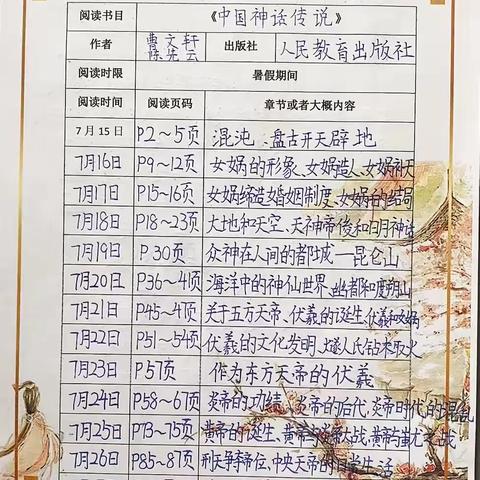 阅读书目 《中国神话传说》
作者 曹文轩 陈先云 出版社 人民教育出版社
阅读时限 暑假期间
阅读时间 阅读页码 章节或者大概内容
7月15日 P2~5页 混沌、盘古开天辟地
7月16日 P9~12页 女娲的形象、女娲造人、女娲补天
7月17日 P15~16页 女娲缔造婚姻制度、女娲的结局
7月18日 P18~23页 大地和天空、天神帝俊和日月神话
7月19日 P30页 众神在人间的都城—昆仑山
7月20日 P36~4页 海洋中的神仙世界、幽都和度朔山
7月21日 P45~4页 关于五方天帝、伏羲的诞生、伏羲和女娲
7月22日 P51~54页 伏羲的文化发明、燧人氏钻木取火
7月23日 P57页 作为东方天帝的伏羲
7月24日 P58~67页 炎帝的功绩、炎帝的后代、炎帝时代的混乱
7月25日 P73~75页 黄帝的诞生、黄帝与炎帝大战、黄帝与蚩尤之战
7月26日 P85~87页 刑天争帝位、中央天帝的日常生活